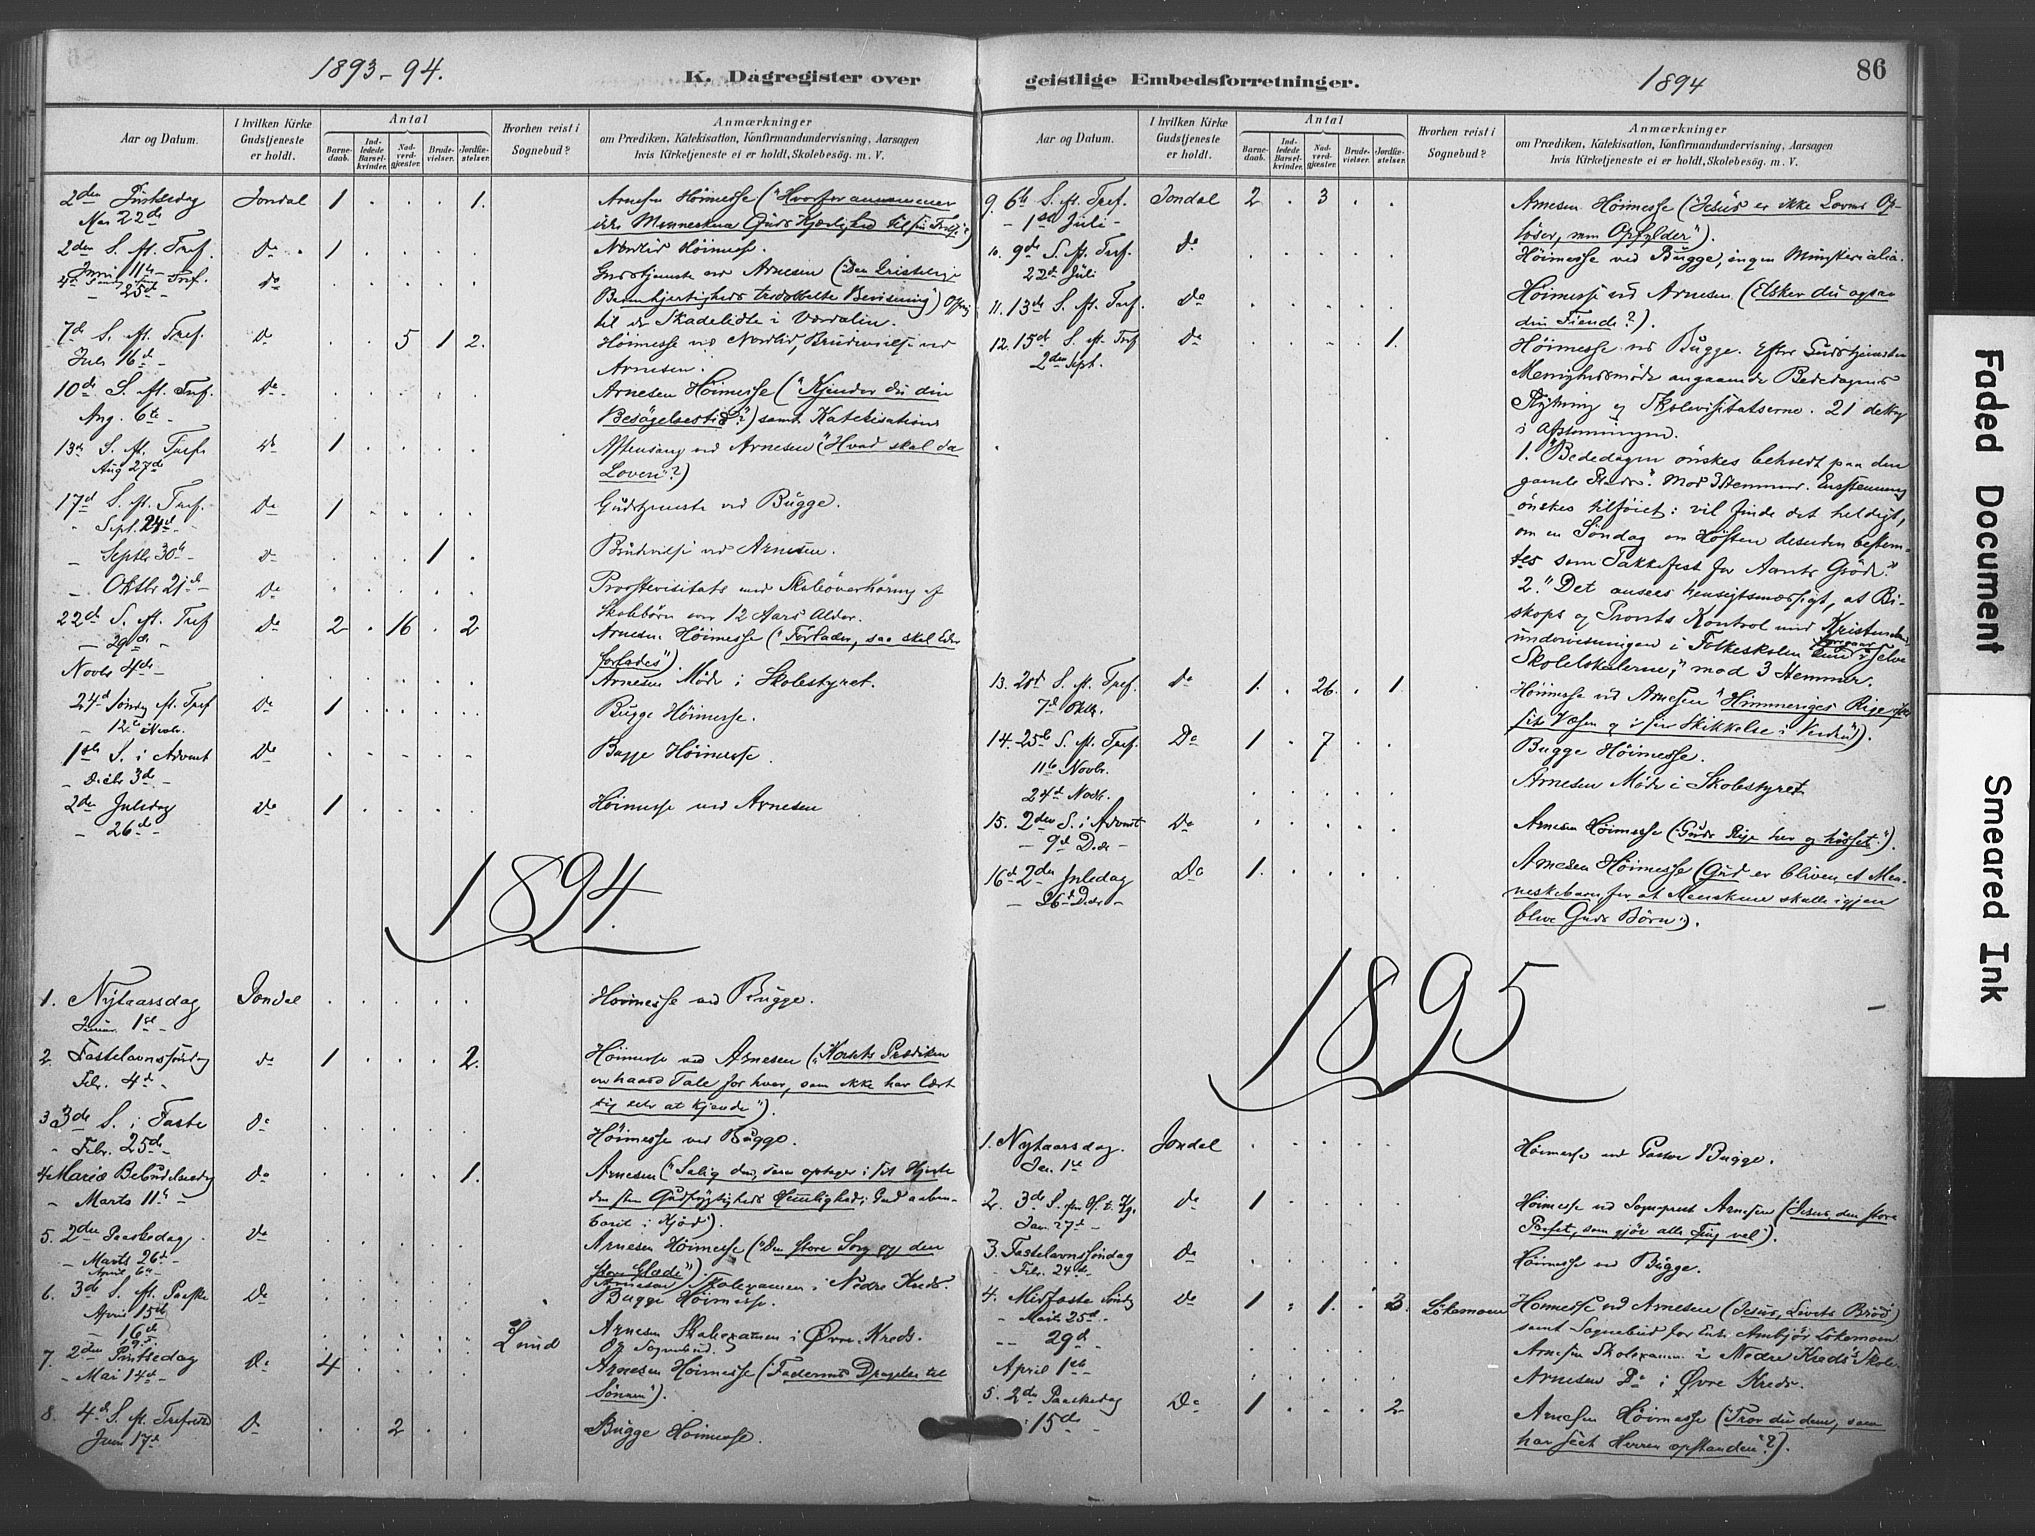 1893-94.
K. Dagregister over
Aar og Datum.
I hvilken Kirke Gudstjeneste er holdt.
Antal
Barnedaab.
Indledede Barselkvinder.
Nadverdgjæster.
Brudevielser.
Jordfæstelser.
Hvorhen reist i Sognebud?
Anmærkninger
om Prædiken, Katekisation, Konfirmandundervisning, Aarsagen
hvis Kirketjeneste ei er holdt, Skolebesög. m. V.
2den Pintsedag Jondal 1 . . . 1. Arnesen Höimesse ("Hvorfor annammer
Mai 22de ikke Menneskene Guds Kjærlighed til sin Frelse?")
2den S. eft. Tref. Do 1 . . . . Nordlid Höimesse.
Juni 11te
4de Söndag efter Tref. Do . . . . . Gudstjeneste ved Arnesen (Den kristelige
- 25de - Barmhjertigheds tredobbelte Bevisning") Ofring
til de Skadelidte i Værdalen.
7de S. eft. Tref. Do . . 5 1 2. Höimesse ved Nordlid, Brudevielse ved
Juli 16de Arnesen.
10de S. eft. Tref. Do . . . . . Arnesen Höimesse ("Kjender du din
Aug. 6te - Besögelsestid"?) samt Katekisation
13de S. eft. Tref. Do 1 . . . . Aftensang ved Arnesen ("Hvad skal da
Aug 27de Loven"?)
17de S. eft. Tref. Do 1 . . . . Gudstjeneste ved Bugge.
" Sept. 24de -
- Septbr 30te - Do . . . 1 . Brudevielse ved Arnesen.
- Oktbr 21de Do Provstevisitats med Skoleoverhöring af
Skolebörn over 12 Aars Alder.
22de S. eft. Tref Do 2 . 16 . 2 Arnesen Höimesse ("Forlader, saa skal Eder
- 29de - forlades").
Novbr 4de - . . . . . Arnesen Möde i Skolestyret.
24de Söndag eft. Tref Do 1 . . . . Bugge Höimesse.
- 12te Novbr.
1ste S. i Advent Do . . . . . Bugge Höimesse.
Decbr 3de -
2den Juledag Do 1 . . . . Höimesse ved Arnesen
- 26de -
1894.
1. Nytaarsdag Jondal . . . . . Höimesse ved Bugge.
Januar 1ste -
2. Fastelavnssöndag Do 1 . . . 2. Höimesse ved Arnesen ("Korsets Prædiken
Febr. 4de - en haard Tale for hver, som ikke har lært
sig selv at kjende").
3 3de S. i Faste Do . . . . . Höimesse ved Bugge.
" Febr. 25de -
4 Mariæ Bebudelsesdag Do . . . . 1. Arnesen ("Salig den, som optager i sit Hjerte
" Marts 11te - den store Gudfrygtigheds Hemmelighed: Gud aaben-
baret i Kjöd").
5. 2den Paaskedag Do . . . . . Arnesen Höimesse ("Den store Sorg og den
- Marts 26de - store Glæde").
April 6te - Arnesen Skolexamen i Nedre Kreds.
6. 3de S. eft. Paaske Do . . . . . Bugge Höimesse.
April 15de
- 16de . . . . . Arnesen Skolexamen i Övre Kreds.
- 19de Lund Og Sognebud.
7. 2den Pintsedag Do 4 . . . . Arnesen Höimesse ("Faderens Dragelse til
- Mai 14de - Sönnen").
8. 4de S. eft. Trefoldh Do . . 2 . . Bugge Höimesse.
Juni 17de
geistlige Embedsforretninger.
1894
86
Aar og Datum.
I hvilken Kirke Gudstjeneste er holdt.
Antal
Barnedaab.
Indledede Barselkvinder.
Nadverdgjæster.
Brudevielser.
Jordfæstelser.
Hvorhen reist i Sognebud?
Anmærkninger
om Prædiken, Katekisation, Konfirmandundervisning, Aarsagen
hvis Kirketjeneste ei er holdt, Skolebesög. m. V.
9. 6te S. eft. Tref. Jondal 2 . 3 . . Arnesen Höimesse ("Jesus er ikke Lovens Op-
- 1ste Juli - löser, men Opfylder").
10. 9de S. eft. Tref. Do . . . . . Höimesse ved Bugge, ingen Ministerialia.
22de Juli
11. 13de S. eft. Tref. Do . . . . . Höimesse ved Arnesen (Elsker du ogsaa
din Fiende?).
12. 15de S. eft. Tref Do . . . . 1. Höimesse ved Bugge. Efter Gudstjenesten
2den Sept. Menighedsmöde angaaende Bededagens
Flytning og Skolevisitatserne. 21 deltog
i Afstemningen.
1. "Bededagen önskes beholdt paa den
gamle Plads". Mod 3 Stemmer. Enstemmig
önskes tilföiet: vil finde det heldigt,
om en Söndag om Hösten desuden bestem-
tes som Takkefest for Aarets Gröde."
2. "Det ansees hensigtsmæssigt, at Bi-
skops og Provsts Kontrol med Kristendoms-
undervisningen i Folkeskolen foregaar i selve
Skolelokalerne," mod 3 Stemmer.
13. 20de S. eft. Tref. Do 1. . 26. . 1 Höimesse ved Arnesen "Himmeriges Rige efter
7de Oktbr. sit Væsen og i sin Skikkelse i Verden").
14. 25de S. eft. Tref. Do 1 . 7 . . Bugge Höimesse.
11te Novbr.
24de Novbr. . . . . . Arnesen Möde i Skolestyret
15. 2den S. i Advent Do . . . . . Arnesen Höimesse (Guds Rige her og hisset").
- 9de Decbr -
16de 2den Juledag Do 1. . . . . Arnesen Höimesse (Gud er bleven et Men-
- 26de Decbr - neskebarn, for at Menneskene skulle igjen
blive Guds Börn").
1895
1. Nytaarsdag. Jondal . . . . . Höimesse ved Pastor Bugge.
Jan. 1ste
2. 3de S. efter H. t. Kg. Do 1 . . . . Höimesse ved Sognepræst Arnesen (Jesus, den store
Jan. 27de - Profet, som gjör alle Ting vel).
3. Fastelavnssöndag Do . . . . . Höimesse ved Bugge.
- Febr. 24de -
4. Midfaste Söndag Do 1 . 1. . 3. Lökemoen Höimesse ved Arnesen (Jesus, Livets Bröd)
- Marts 25de - samt Sognebud for Enke Ambjör Lökemoen
-- 29de - . . . . . Arnesen Skolexamen i Nedre Kreds's Skole.
April 1ste . . . . . Arnesen Do i Övre Kreds.
5. 2den Paaskedag Do 1 . . . 2 Arnesen Höimesse (Tror du dem, som
- 15de har seet Herren opstanden"?).
Faded Document
Smeared Ink